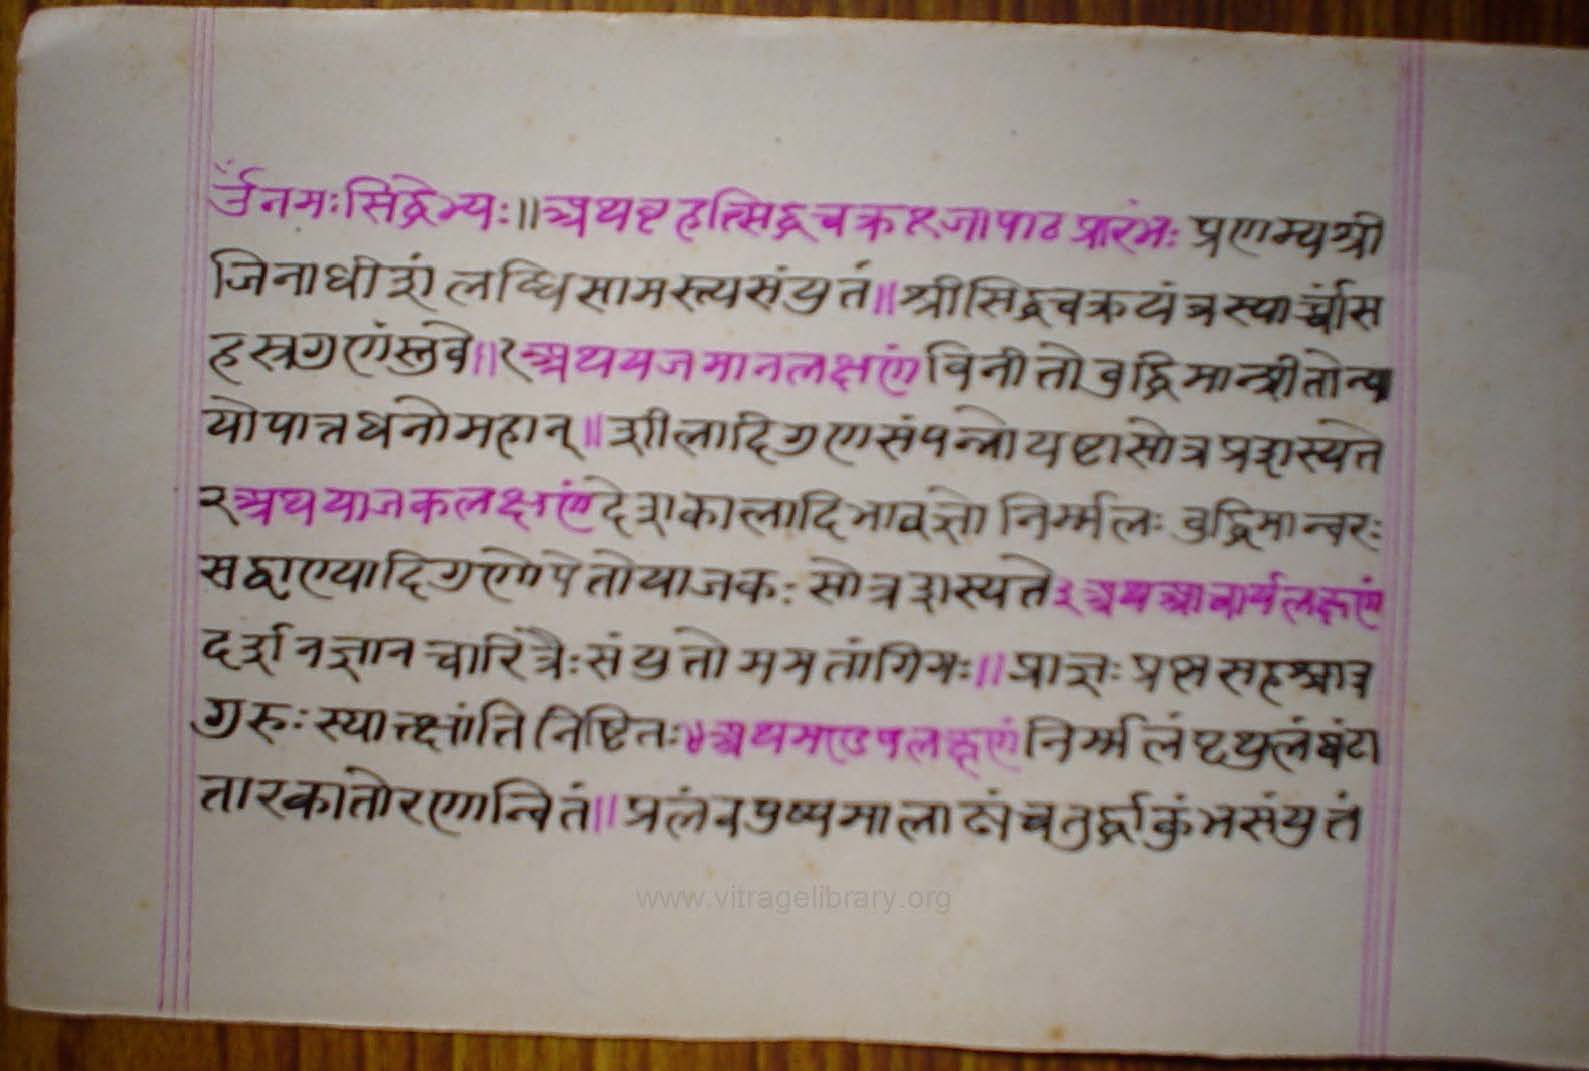 ॐ नमः सिद्धेभ्यः ॥ अथ बृहत्सिद्धचक्र पूजा पाठ प्रारंभः प्रणम्य श्री
जिनाधीशं लब्धिसामस्त्यसंयुतं ॥ श्री सिद्धचक्रयंत्रस्यार्च्चां स
हस्रगुणं स्तुवे ॥ १ अथ यजमानलक्षणं विनीतो बुद्धिमान्प्रीतो न्या
योपात्तधनो महान् ॥ शीलादिगुणसंपन्नो यष्टा सोत्र प्रशस्यते
२ अथ याजकलक्षणं देशकालादिभावज्ञो निर्म्मलः बुद्धिमान्वरः
सद्वाण्यादिगुणोपेतो याजकः सोत्र शस्यते ३ अथ आचार्यलक्षणं
दर्शनज्ञानचारित्रैः संयुतो ममतांगिभः ॥ प्राज्ञः प्रश्नसहश्चात्र
गुरुः स्यात्क्षांतिनिष्टितः ४ अथ मण्डपलक्षणं निर्म्मलं पृथुलं घंटा
तारकातोरणान्वितं ॥ प्रलंबपुष्पमालाढ्यं चतुर्द्धा कुंभसंयुतं
www.vitragelibrary.org